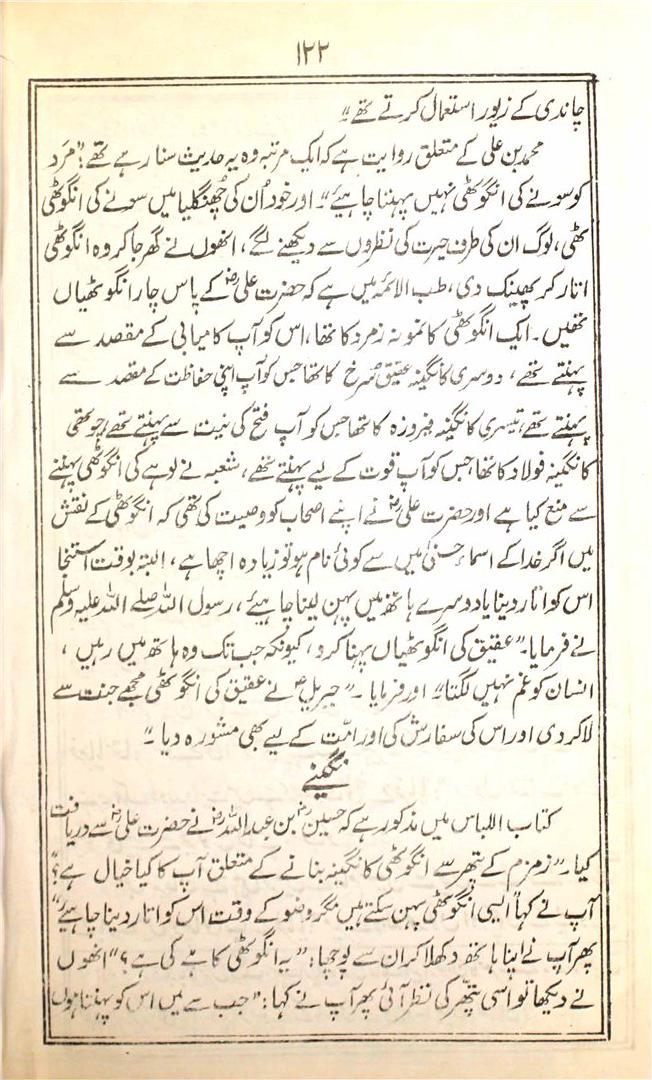 ۱۲۲
چاندی کے زیور استعمال کرتے تھے"
محمد بن علی کے متعلق روایت ہے کہ ایک مرتبہ وہ یہ حدیث سنا رہے تھے "مرَد
کو سونے کی انگوٹھی نہیں پہننا چاہیئے" اور خود اُن کی چھنگلیا میں سونے کی انگوٹھی
تھی، لوگ ان کی طرف حیرت کی نظروں سے دیکھنے لگے، انھوں نے گھر جا کر وہ انگوٹھی
اتار کر پھینک دی، طب الائمہ میں ہے کہ حضرت علیؓ کے پاس چار انگوٹھیاں
تھیں۔ ایک انگوٹھی کا نمونہ زمرد کا تھا، اس کو آپ کامیابی کے مقصد سے
پہنتے تھے، دوسری کا نگینہ عقیق سرخ کا تھا جس کو آپ اپنی حفاظت کے مقصد سے
پہنتے تھے، تیسری کا نگینہ فیروزہ کا تھا جس کو آپ فتح کی نیت سے پہنتے تھے، چوتھی
کا نگینہ فولاد کا تھا، جس کو آپ قوت کے لیے پہنتے تھے، شعبہ نے لوہے کی انگوٹھی پہننے
سے منع کیا ہے اور حضرت علیؓ نے اپنے اصحاب کو وصیت کی تھی کہ انگوٹھی کے نقش
میں اگر خدا کے اسماء حسنیٰ میں سے کوئی نام ہو تو زیادہ اچھا ہے، البتہ بوقت استنجا
اس کو اتار دینا یا دوسرے ہاتھ میں پہن لینا چاہیئے، رسول اللہ صلے اللہ علیہ وسلم
نے فرمایا۔ "عقیق کی انگوٹھیاں پہنا کرو، کیونکہ جب تک وہ ہاتھ میں رہیں،
انسان کو غم نہیں لگتا" اور فرمایا۔ "جبریلؑ نے عقیق کی انگوٹھی مجھے جنت سے
لا کر دی اور اس کی سفارش کی اور امّت کے لیے بھی مشورہ دیا۔"
نگینے
کتاب اللباس میں مذکور ہے کہ حسینؓ بن عبداللہؓ نے حضرت علیؓ سے دریافت
کیا۔ "زمزم کے پتھر سے انگوٹھی کا نگینہ بنانے کے متعلق آپ کا کیا خیال ہے؟"
آپ نے کہا "ایسی انگوٹھی پہن سکتے ہیں مگر وضو کے وقت اس کو اتار دینا چاہیئے"
پھر آپ نے اپنا ہاتھ دکھلا کر ان سے پوچھا: "یہ انگوٹھی کاہے کی ہے؟" انھوں
نے دیکھا تو اسی پتھر کی نظر آئی پھر آپ نے کہا: "جب سے میں اس کو پہنتا ہوں